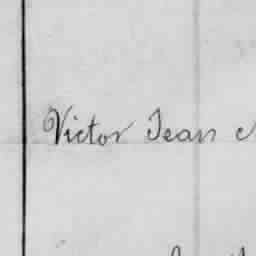 Victor Jean